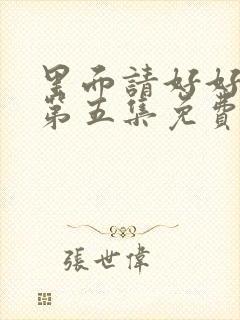 里而請好好
第五集免費
張世偉